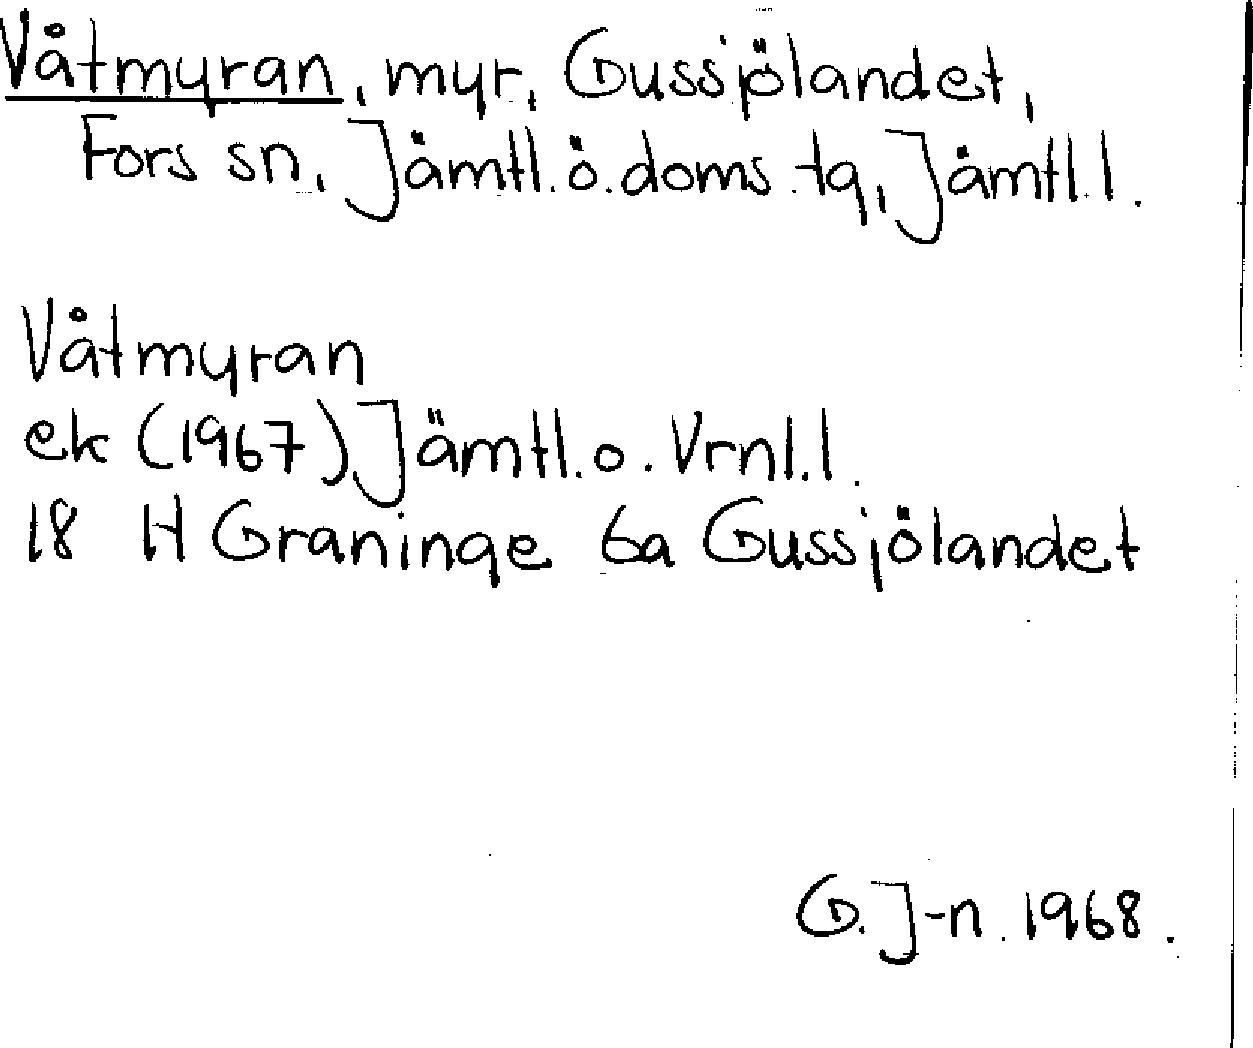 Våtmyran, myr, Gussjölandet,
Fors sn, Jämtl. ö. doms. tg, Jämtl. l.
Våtmyran
ek (1967) Jämtl. o. Vrnl. l.
18 H Graninge 6a Gussjölandet
G. J-n. 1968.